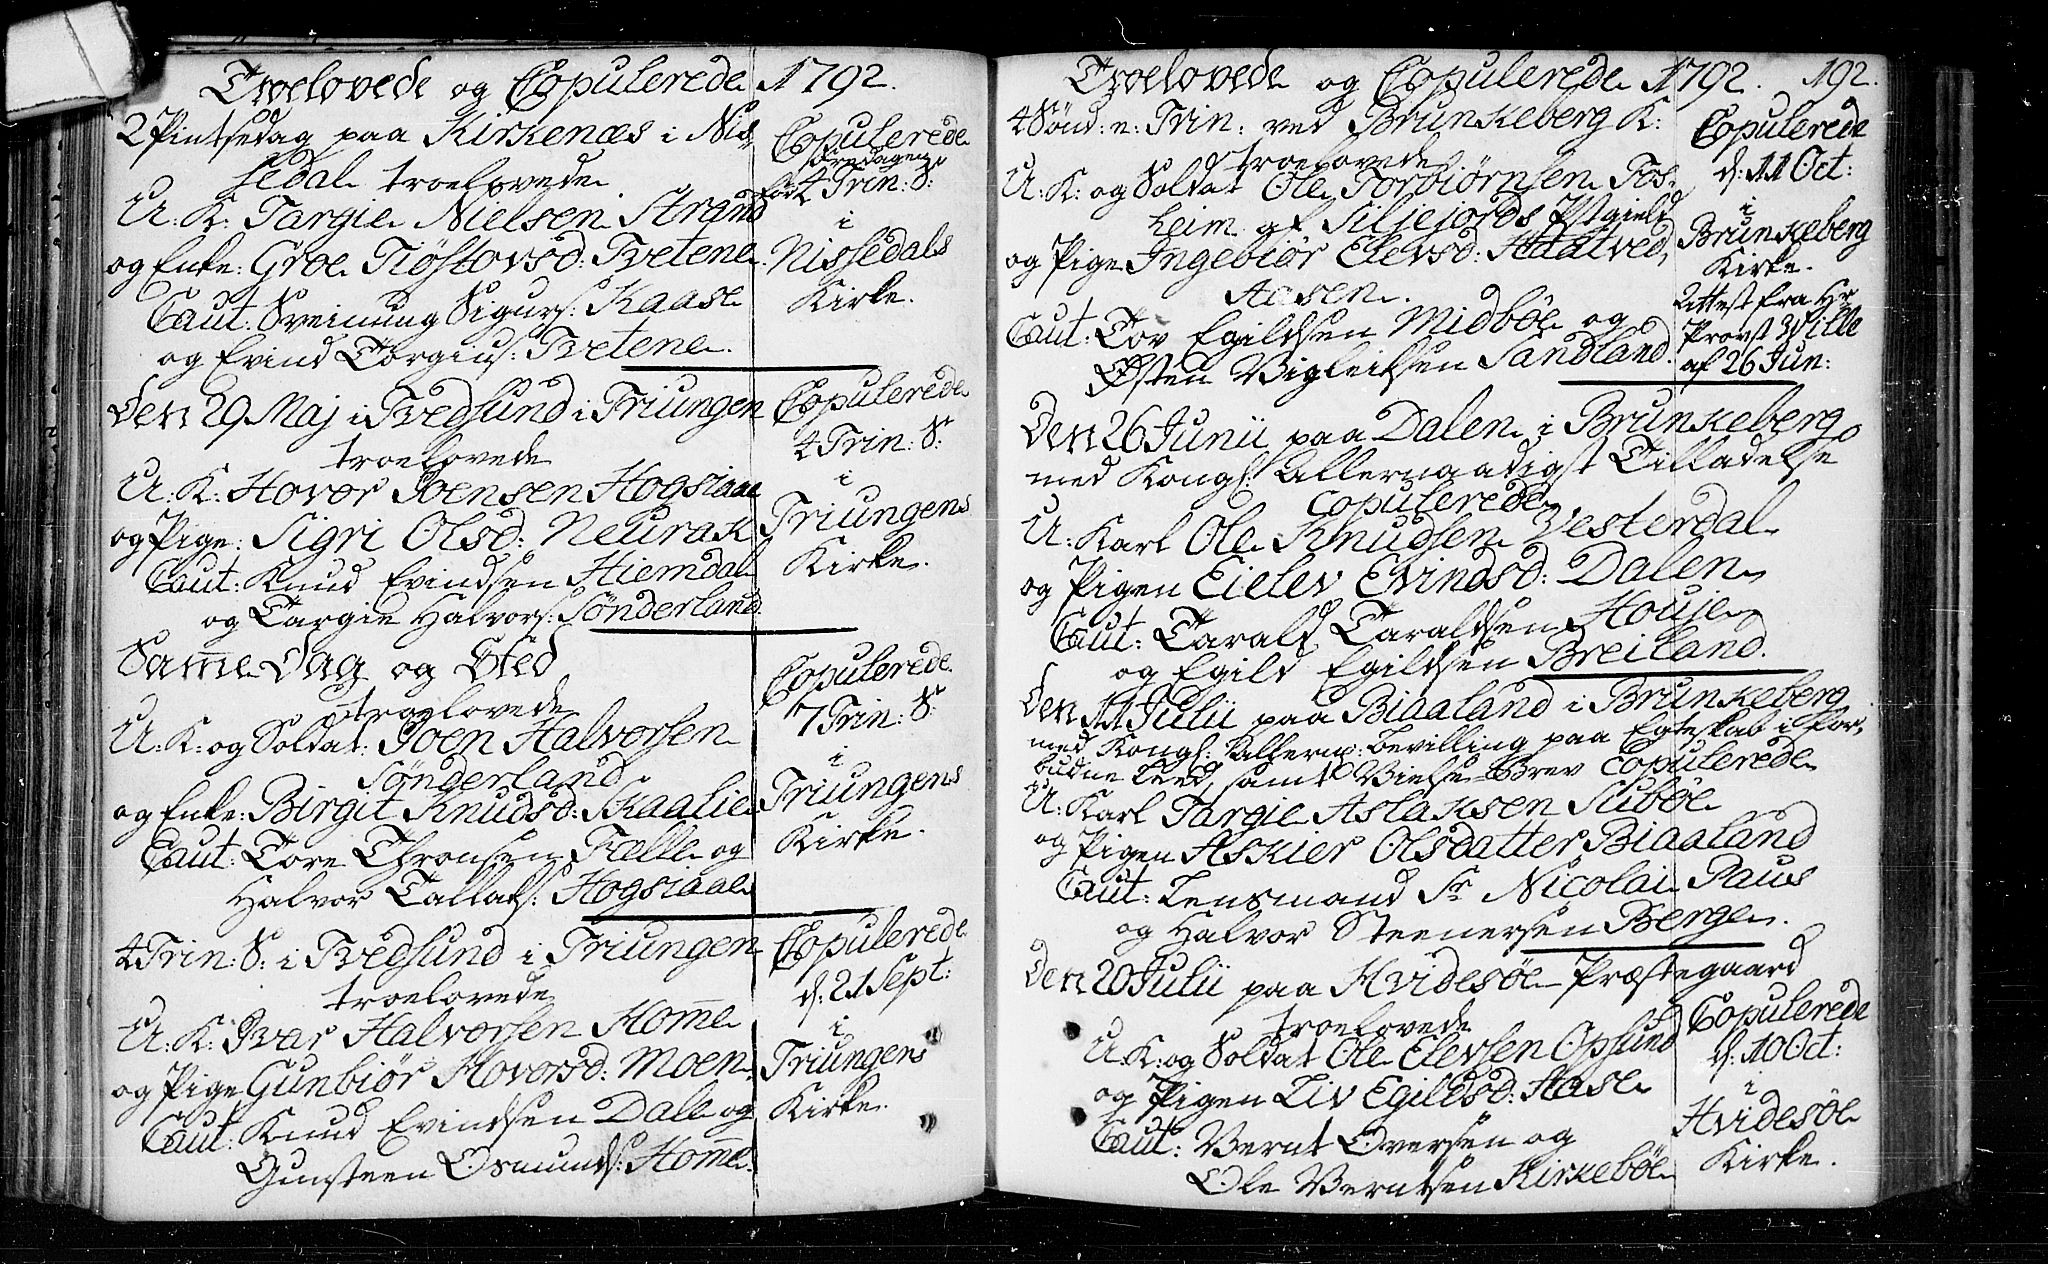 Troelovede og Copulerede 1792.
2 Pintsedag paa Kirkenæs i Nis-
sedal troelovede
U: K: Targie Nielsen Strand
og Enke: Groe Tiöstovsd: Tvetene.
Caut: Sveinung Sigurs: Kaase
og Evind Torgius: Tvetene.
Copulerede
Löverdagen
før 4 Trin: S:
i
Nissedals
Kirke.
Den 29 Maj i Tvedsund i Triungen
troelovede
U: K: Hovor Joensen Hogsiaae
og Pige: Sigri Olsd: Neurak
Caut: Knud Evindsen Hiemdal
og Targie Halvors: Sönderland.
Copulerede
4 Trin: S:
i
Triungens
Kirke.
Same Dag og Sted
troelovede
U: K: og Soldat: Joen Halvorsen
Sönderland
og Enke: Birgit Knudsd: Skaalie
Caut: Tore Thronsen Felle og
Halvor Tallaks: Hogsiaae
Copulerede
7 Trin: S:
i
Triungens
Kirke.
4 Trin: S: i Tvedsund i Triungen
troelovede
U: K: Ivar Halvorsen Home
og Pige Gunbiör Hovorsd: Moen
Caut: Knud Evindsen Dale og
Gunsteen Osmunds: Home.
Copulerede
d: 21 Sept:
i
Triungens
Kirke.
Troelovede og Copulerede 1792. 192.
4 Sönd: e: Trin: ved Brunkeberg K:
troelovede
U: K: og Soldat Ole Torbiörnsen Fos-
heim af Siljejords Pstgield
og Pige Ingebiör Elevsd: Haatved,
Aasen.
Caut: Tov Egildsen Midböe og
Østen Vigleiksen Sandland.
Copulerede
d: 11 Oct:
i
Brunkeberg
Kirke.
Attest fra Hr
Provst Wille
af 26 Jun:
Den 26 Junii paa Dalen i Brunkeberg
med Kongl: Allernaadigst Tilladelse
copulerede
U: Karl Ole Knudsen Vesterdal
og Pigen Eielev Evindsd: Dalen
Caut: Tarald Taraldsen Houje
og Egild Egildsen Breiland.
Den 11 Julii paa Biaaland i Brunkeberg
med Kongl: allern: Bevilling paa Egteskab i for-
budne Leed, samt Vielse-Brev Copulerede
U: Karl Targie Aslaksen Sliböe
og Pigen Askier Olsdatter Biaaland
Caut: Lensmand Sr Nicolai Paus
og Halvor Steenersen Berge.
Den 20 Julii paa Hvidesöe Præstegaard
troelovede
U K: og Soldat Ole Elevsen Opsund
og Pigen Liv Egildsd: Aase
Caut: Bernt Oversen og
Ole Berntsen Kirkeböe
Copulerede
d: 10 Oct:
i
Hvidesöe
Kirke.